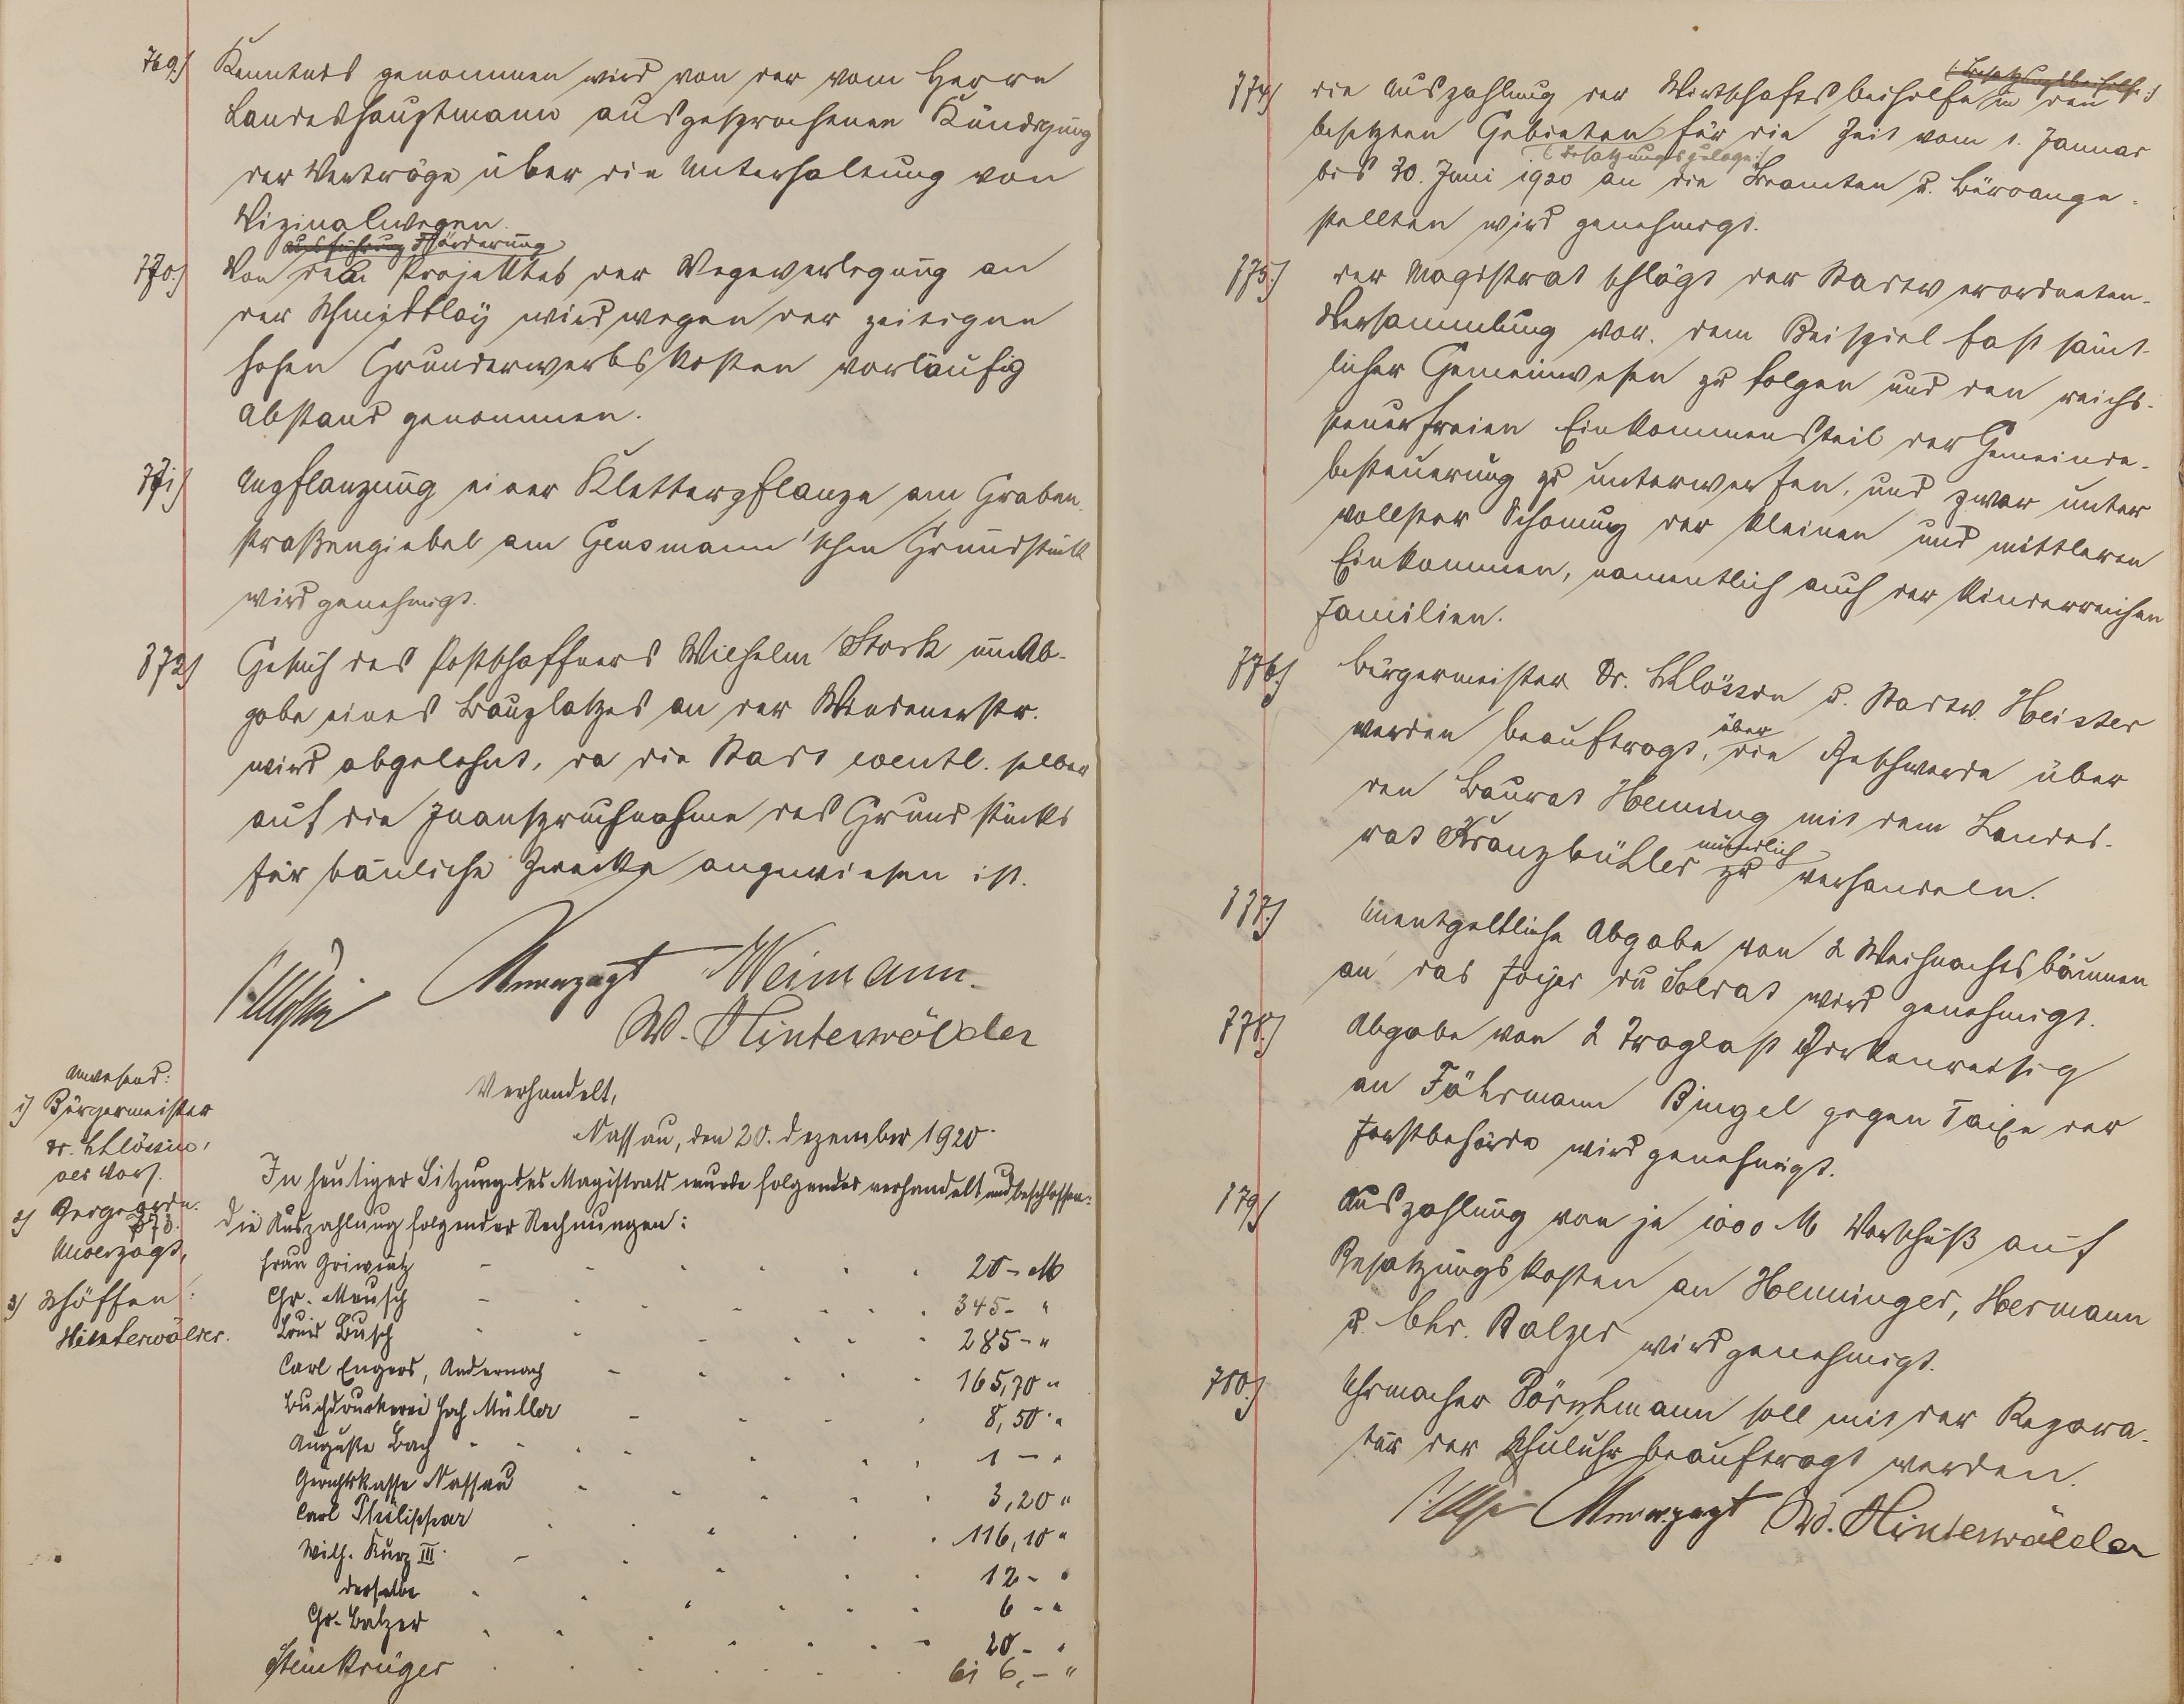 769) Kenntnis genommen wird von der vom Herrn
Landeshauptmann ausgesprochenen Kündigung
der Verträge über die Unterhaltung von
Vizinalwegen.
Ausführung Förderung
770) Von der Projektes der Wegeverlegung an
der wird wegen der zeitigen
hohen Grunderwerbskosten vorläufig
Abstand genommen.
771) Anpflanzung einer Kletterpflanze am Graben-
straßengiebel am Gensmann'schen Grundstück
wird genehmigt.
772) Gesuch des Postschaffners Wilhelm Stork um Ab-
gabe eines Bauplatzes an der Windenerstr.
wird abgelehnt, da die Stadt eventl. selber
auf die Inanspruchnahme des Grundstücks
für bauliche Zwecke angewiesen ist.
Unverzagt Weimann.
W. Hinterwälder
Anwesend:
1) Bürgermeister
Dr. Schlösser,
als Vors.
2) Beigeordn.
Unverzagt,
3) Schöffen:
Hinterwälder.
Verhandelt,
Nassau, den 20. Dezember 1920.
In heutiger Sitzung des Magistrats wurde folgendes verhandelt und beschlossen:
773. Die Auszahlung folgender Rechnungen:
Frau Griwitz - 20 - M
Chr. Mausch - 345 - "
Louis Busch - 285 - "
Carl Engers, Andernach - 165,70 "
Buchdruckerei Hch. Müller - 8,50 "
Auguste Bach - 1 - "
Gerichtskasse Nassau - 3,20 "
Carl Philippar - 116,10 "
Wilh. Kurz III. - 12 - "
derselbe - 6 - "
Chr. Balzer - 20 - "
Steinkrüger 6,- "
(: Besatzungsbeihilfe :)
774) Die Auszahlung der Wirtschaftsbeihilfe in den
besetzten Gebieten für die Zeit vom 1. Januar
(: Besatzungszulage :)
bis 30. Juni 1920 an die Beamten u. Büroange-
stellten wird genehmigt.
775) Der Magistrat schlägt der Stadtverordneten-
Versammlung vor, dem Beispiel fast sämt-
licher Gemeinwesen zu folgen und den reichs-
steuerfreien Einkommensteil der Gemeinde-
besteuerung zu unterwerfen, und zwar unter
vollster Schonung der kleinen und mittleren
Einkommen, namentlich auch der kinderreichen
Familien.
776) Bürgermeister Dr. Schlösser u. Stadtv. Heister
über
werden beauftragt, die Beschwerde über
den Baurat Henning mit dem Landes-
rat Kranzbühler
mündlich
zu verhandeln.
777) Unentgeltliche Abgabe von 2 Weihnachtsbäumen
an das Foyer du Soldat wird genehmigt.
778) Abgabe von 2 Traglast Birkenreisig
an Fährmann Bingel gegen Taxe der
Forstbehörde wird genehmigt.
779) Auszahlung von je 1000 M Vorschuß auf
Besatzungskosten an Henninger, Hermann
u. Chr. Balzer wird genehmigt.
780) Uhrmacher soll mit der Repara-
tur der Schuluhr beauftragt werden.
Unverzagt W. Hinterwälder